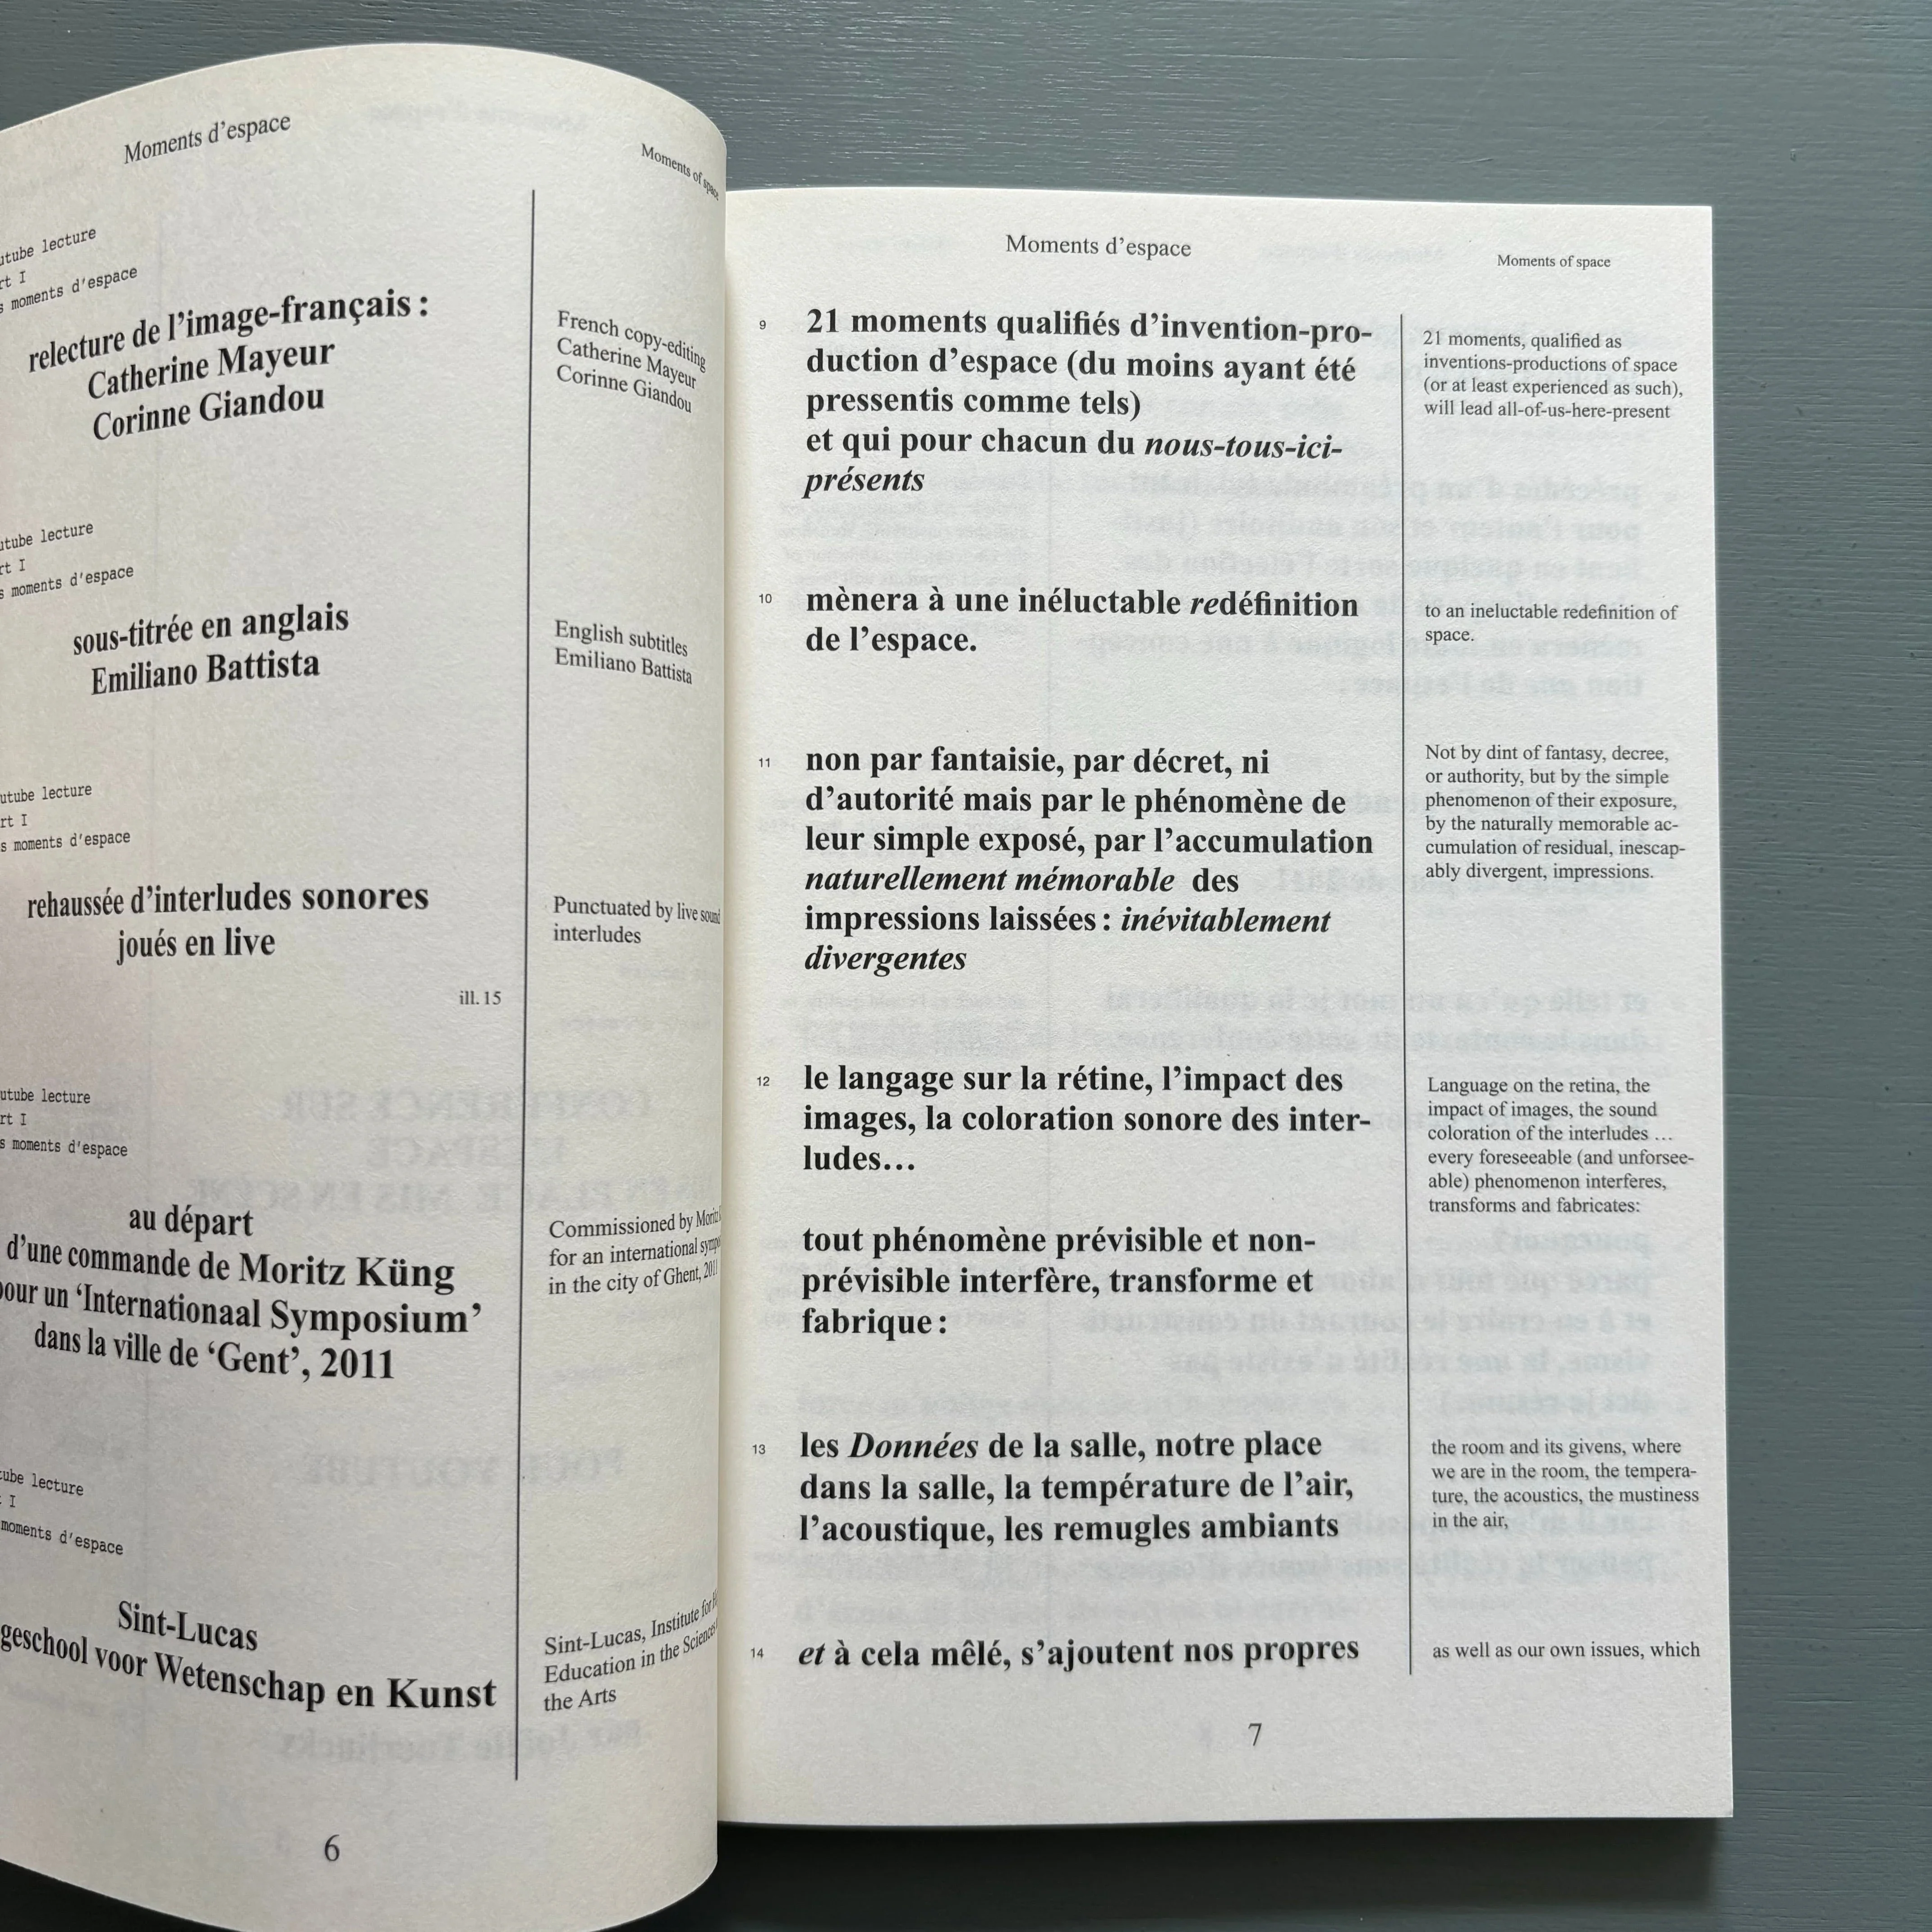 Moments d’espace
Moments of space
lecture
I
moments d’espace
relecture de l’image-français :
Catherine Mayeur
Corinne Giandou
French copy-editing
Catherine Mayeur
Corinne Giandou
lecture
I
moments d’espace
sous-titrée en anglais
Emiliano Battista
English subtitles
Emiliano Battista
lecture
I
moments d’espace
rehaussée d’interludes sonores
joués en live
ill. 15
Punctuated by live sound
interludes
lecture
I
moments d’espace
au départ
d’une commande de Moritz Küng
pour un ‘Internationaal Symposium’
dans la ville de ‘Gent’, 2011
Commissioned by Moritz
for an international
in the city of Ghent, 2011
lecture
I
moments d’espace
Sint-Lucas
voor Wetenschap en Kunst
Sint-Lucas, Institute for
Education in the Sciences
the Arts
6
Moments d’espace
Moments of space
9
21 moments qualifiés d’invention-pro-
duction d’espace (du moins ayant été
pressentis comme tels)
et qui pour chacun du nous-tous-ici-
présents
21 moments, qualified as
inventions-productions of space
(or at least experienced as such),
will lead all-of-us-here-present
10
mènera à une inéluctable redéfinition
de l’espace.
to an ineluctable redefinition of
space.
11
non par fantaisie, par décret, ni
d’autorité mais par le phénomène de
leur simple exposé, par l’accumulation
naturellement mémorable des
impressions laissées : inévitablement
divergentes
Not by dint of fantasy, decree,
or authority, but by the simple
phenomenon of their exposure,
by the naturally memorable ac-
cumulation of residual, inescap-
ably divergent, impressions.
12
le langage sur la rétine, l’impact des
images, la coloration sonore des inter-
ludes…
tout phénomène prévisible et non-
prévisible interfère, transforme et
fabrique :
Language on the retina, the
impact of images, the sound
coloration of the interludes …
every foreseeable (and unforsee-
able) phenomenon interferes,
transforms and fabricates:
13
les Données de la salle, notre place
dans la salle, la température de l’air,
l’acoustique, les remugles ambiants
the room and its givens, where
we are in the room, the tempera-
ture, the acoustics, the mustiness
in the air,
14
et à cela mêlé, s’ajoutent nos propres
as well as our own issues, which
7